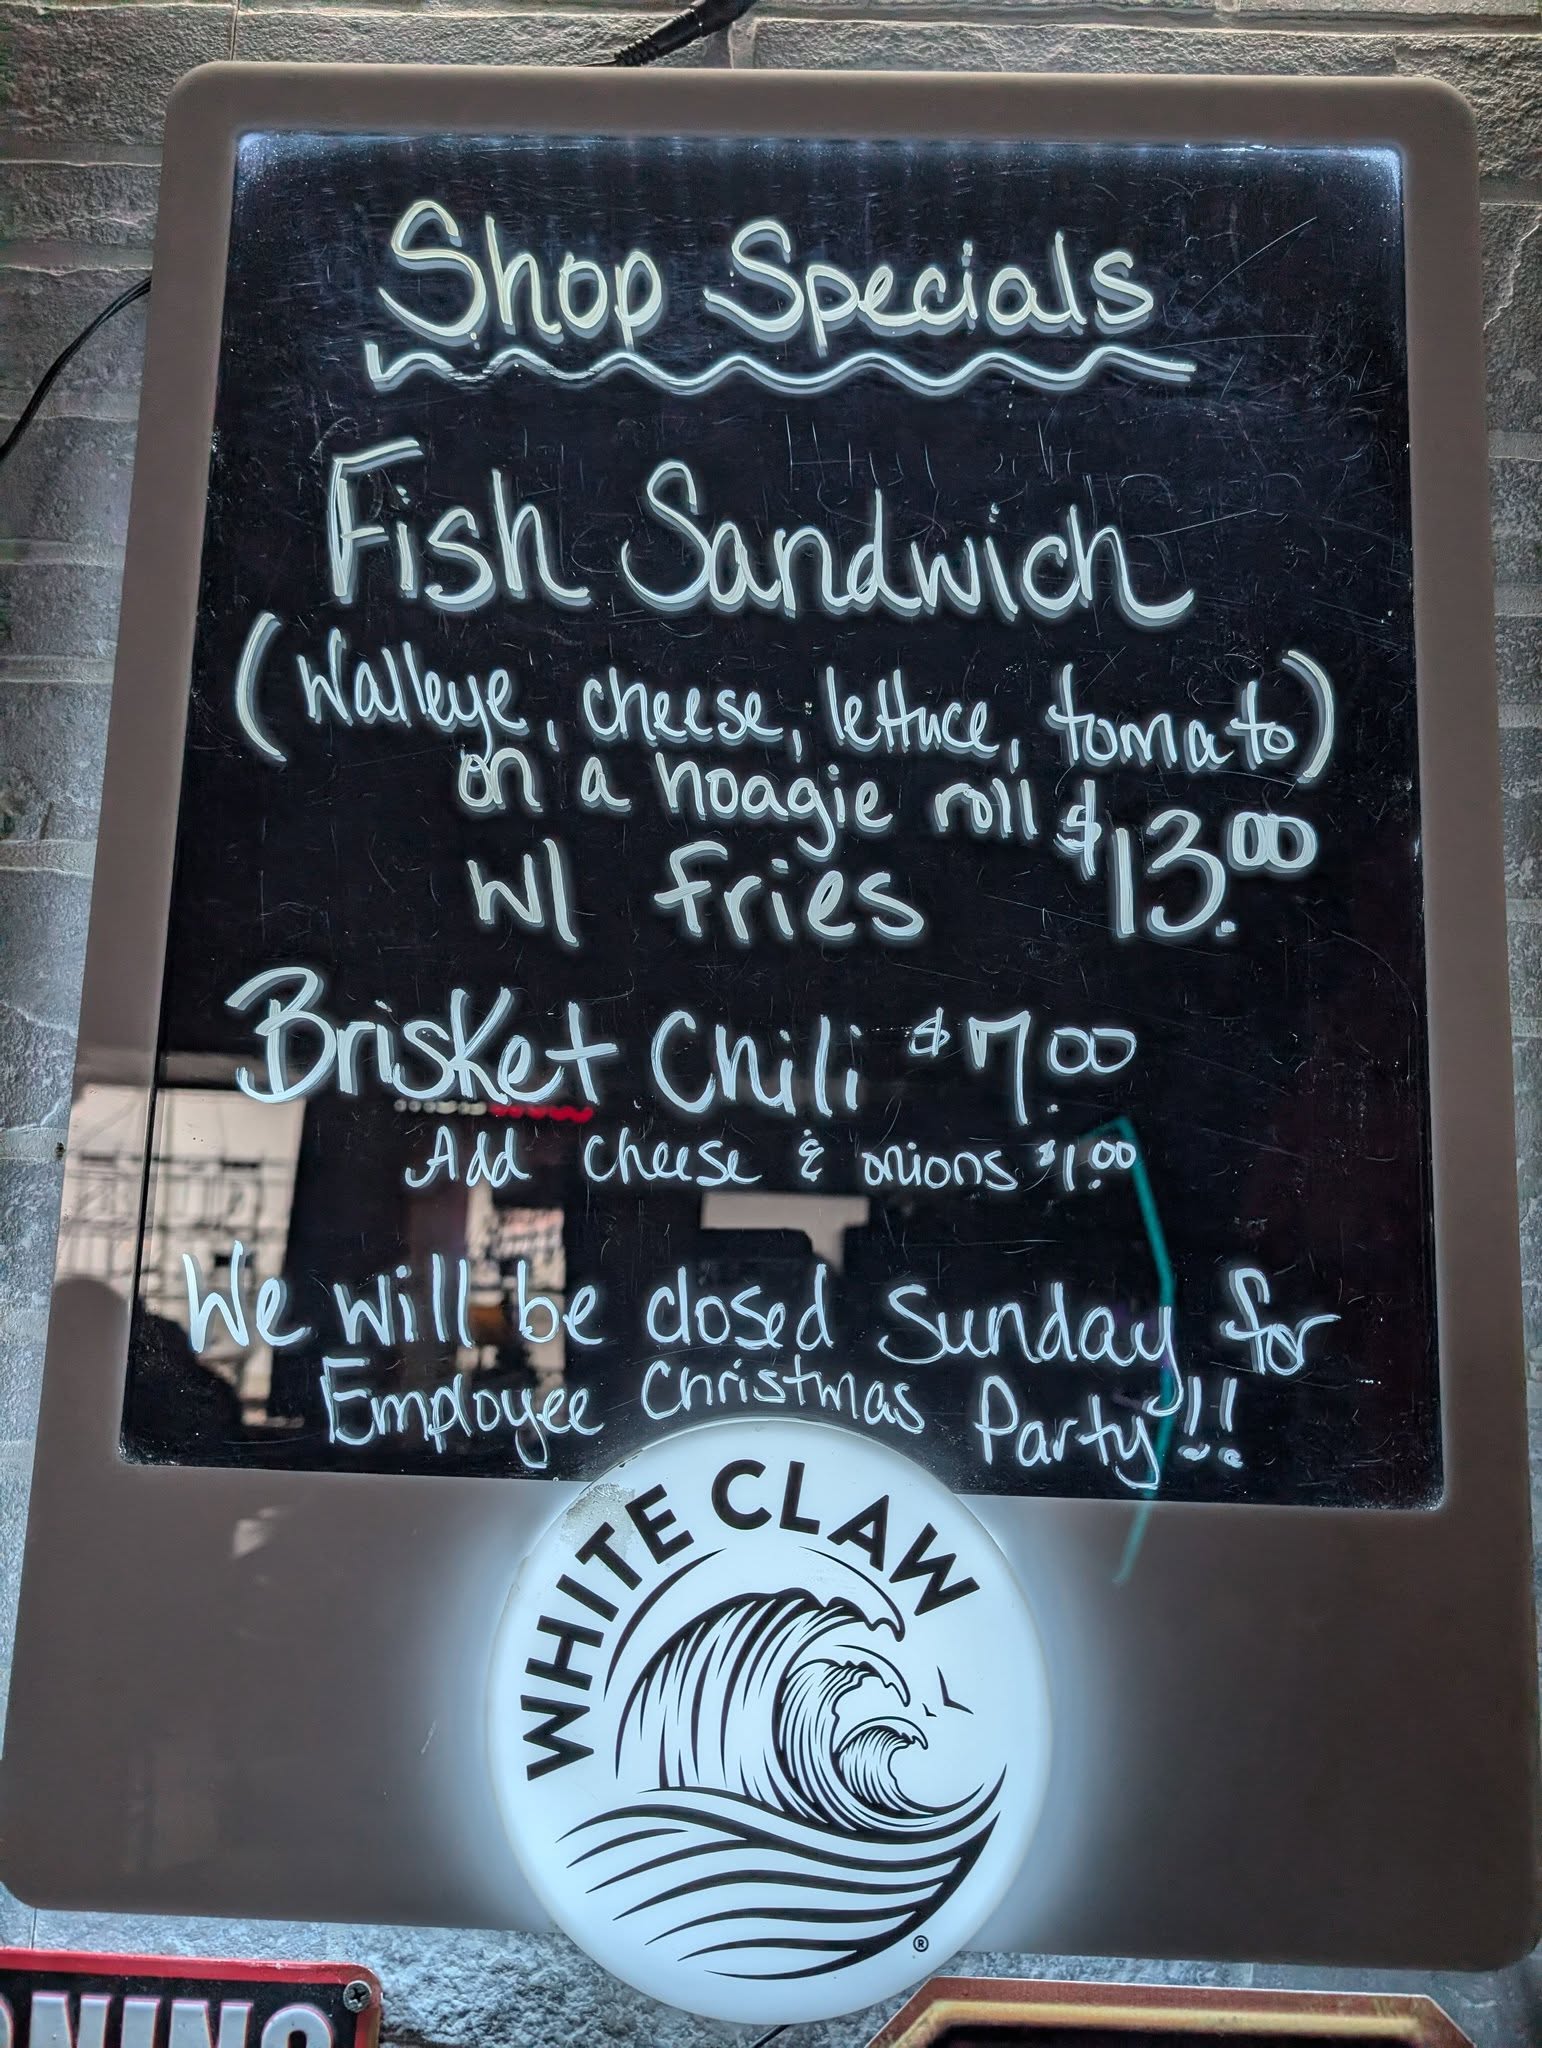 Shop Specials
Fish Sandwich
(Walleye, cheese, lettuce, tomato)
on a hoagie roll $13.00
w/ fries
Brisket Chili $7.00
Add cheese & onions $1.00
We will be closed Sunday for
Employee Christmas Party!!
WHITE CLAW
®